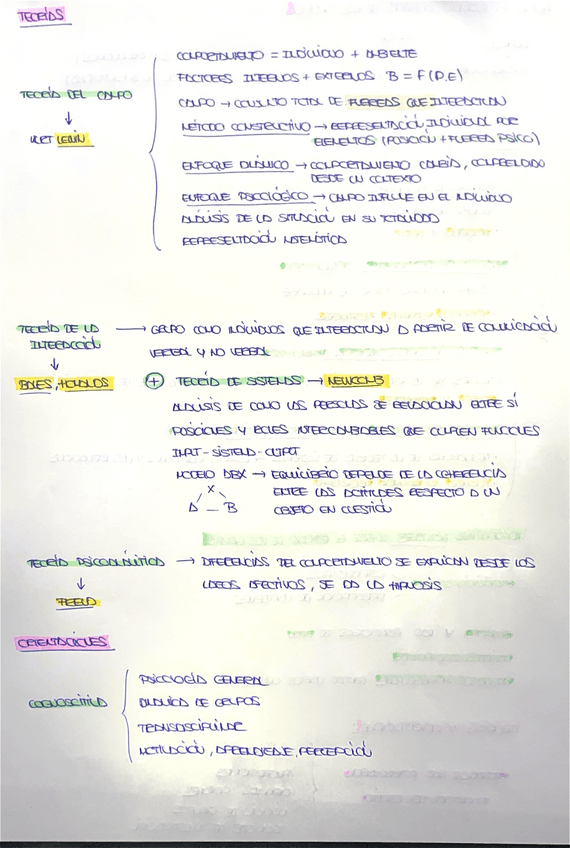 TEORÍAS
TEORÍA DEL CAMPO
↓
KURT LEWIN
COMPORTAMIENTO = INDIVIDUO + AMBIENTE
FACTORES INTERNOS + EXTERNOS B = F(P,E)
CAMPO → CONJUNTO TOTAL DE FUERZAS QUE INTERACTÚAN
MÉTODO CONSTRUCTIVO → REPRESENTACIÓN INDIVIDUAL POR
ELEMENTOS (POSICIÓN + FUERZA PSICO)
ENFOQUE DINÁMICO → COMPORTAMIENTO CAMBIA, COMPRENDIDO
DESDE UN CONTEXTO
ENFOQUE PSICOLÓGICO → CAMPO INFLUYE EN EL INDIVIDUO
ANÁLISIS DE LA SITUACIÓN EN SU TOTALIDAD
REPRESENTACIÓN MATEMÁTICA
TEORÍA DE LA
INTERACCIÓN
↓
BALES, HOMANS
→ GRUPO COMO INDIVIDUOS QUE INTERACTÚAN A PARTIR DE COMUNICACIÓN
VERBAL Y NO VERBAL
+ TEORÍA DE SISTEMAS → NEWCOMB
ANÁLISIS DE COMO LAS PERSONAS SE RELACIONAN ENTRE SÍ
POSICIONES Y ROLES INTERCAMBIABLES QUE CUMPLEN FUNCIONES
INPUT-SISTEMA-OUTPUT
MODELO ABX → EQUILIBRIO DEPENDE DE LA COHERENCIA
ENTRE LAS ACTITUDES RESPECTO A UN
OBJETO EN CUESTIÓN
X
A - B
TEORÍA PSICOANALÍTICA → DIFERENCIAS DEL COMPORTAMIENTO SE EXPLICAN DESDE LOS
LAZOS AFECTIVOS, SE DA LA HIPNOSIS
↓
FREUD
ORIENTACIONES
COGNOSCITIVA
PSICOLOGÍA GENERAL
DINÁMICA DE GRUPOS
TRANSDISCIPLINAR
MOTIVACIÓN, APRENDIZAJE, PERCEPCIÓN